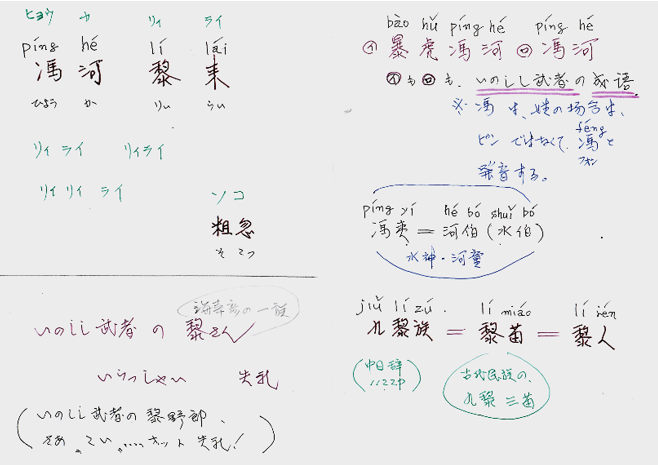 ヒョウ カ リィ ライ
píng hé lí lái
馮 河 黎 来
ひょう か りい らい
リィ ライ リィライ
リィ リィ ライ
ソコ
粗忽
そこつ
海東島の一族
いのしし武者 の 黎さん
いらっしゃい 失礼
いのしし武者の黎野郎、
さあ、てい、、…ホント 失礼!
bào hǔ píng hé píng hé
㋑ 暴虎馮河 ㋺ 馮河
㋑も㋺も、いのしし武者の成語。
※ 馮は、姓の場合は、
ピン ではなくて、馮と
féng
フォン
発音する。
píng yí hé bó shuǐ bó
馮夷 = 河伯(水伯)
水神・河童
jiǔ lí zú lí miáo lí rén
九黎族 = 黎苗 = 黎人
中日辞
古代民族の、
九黎 三苗